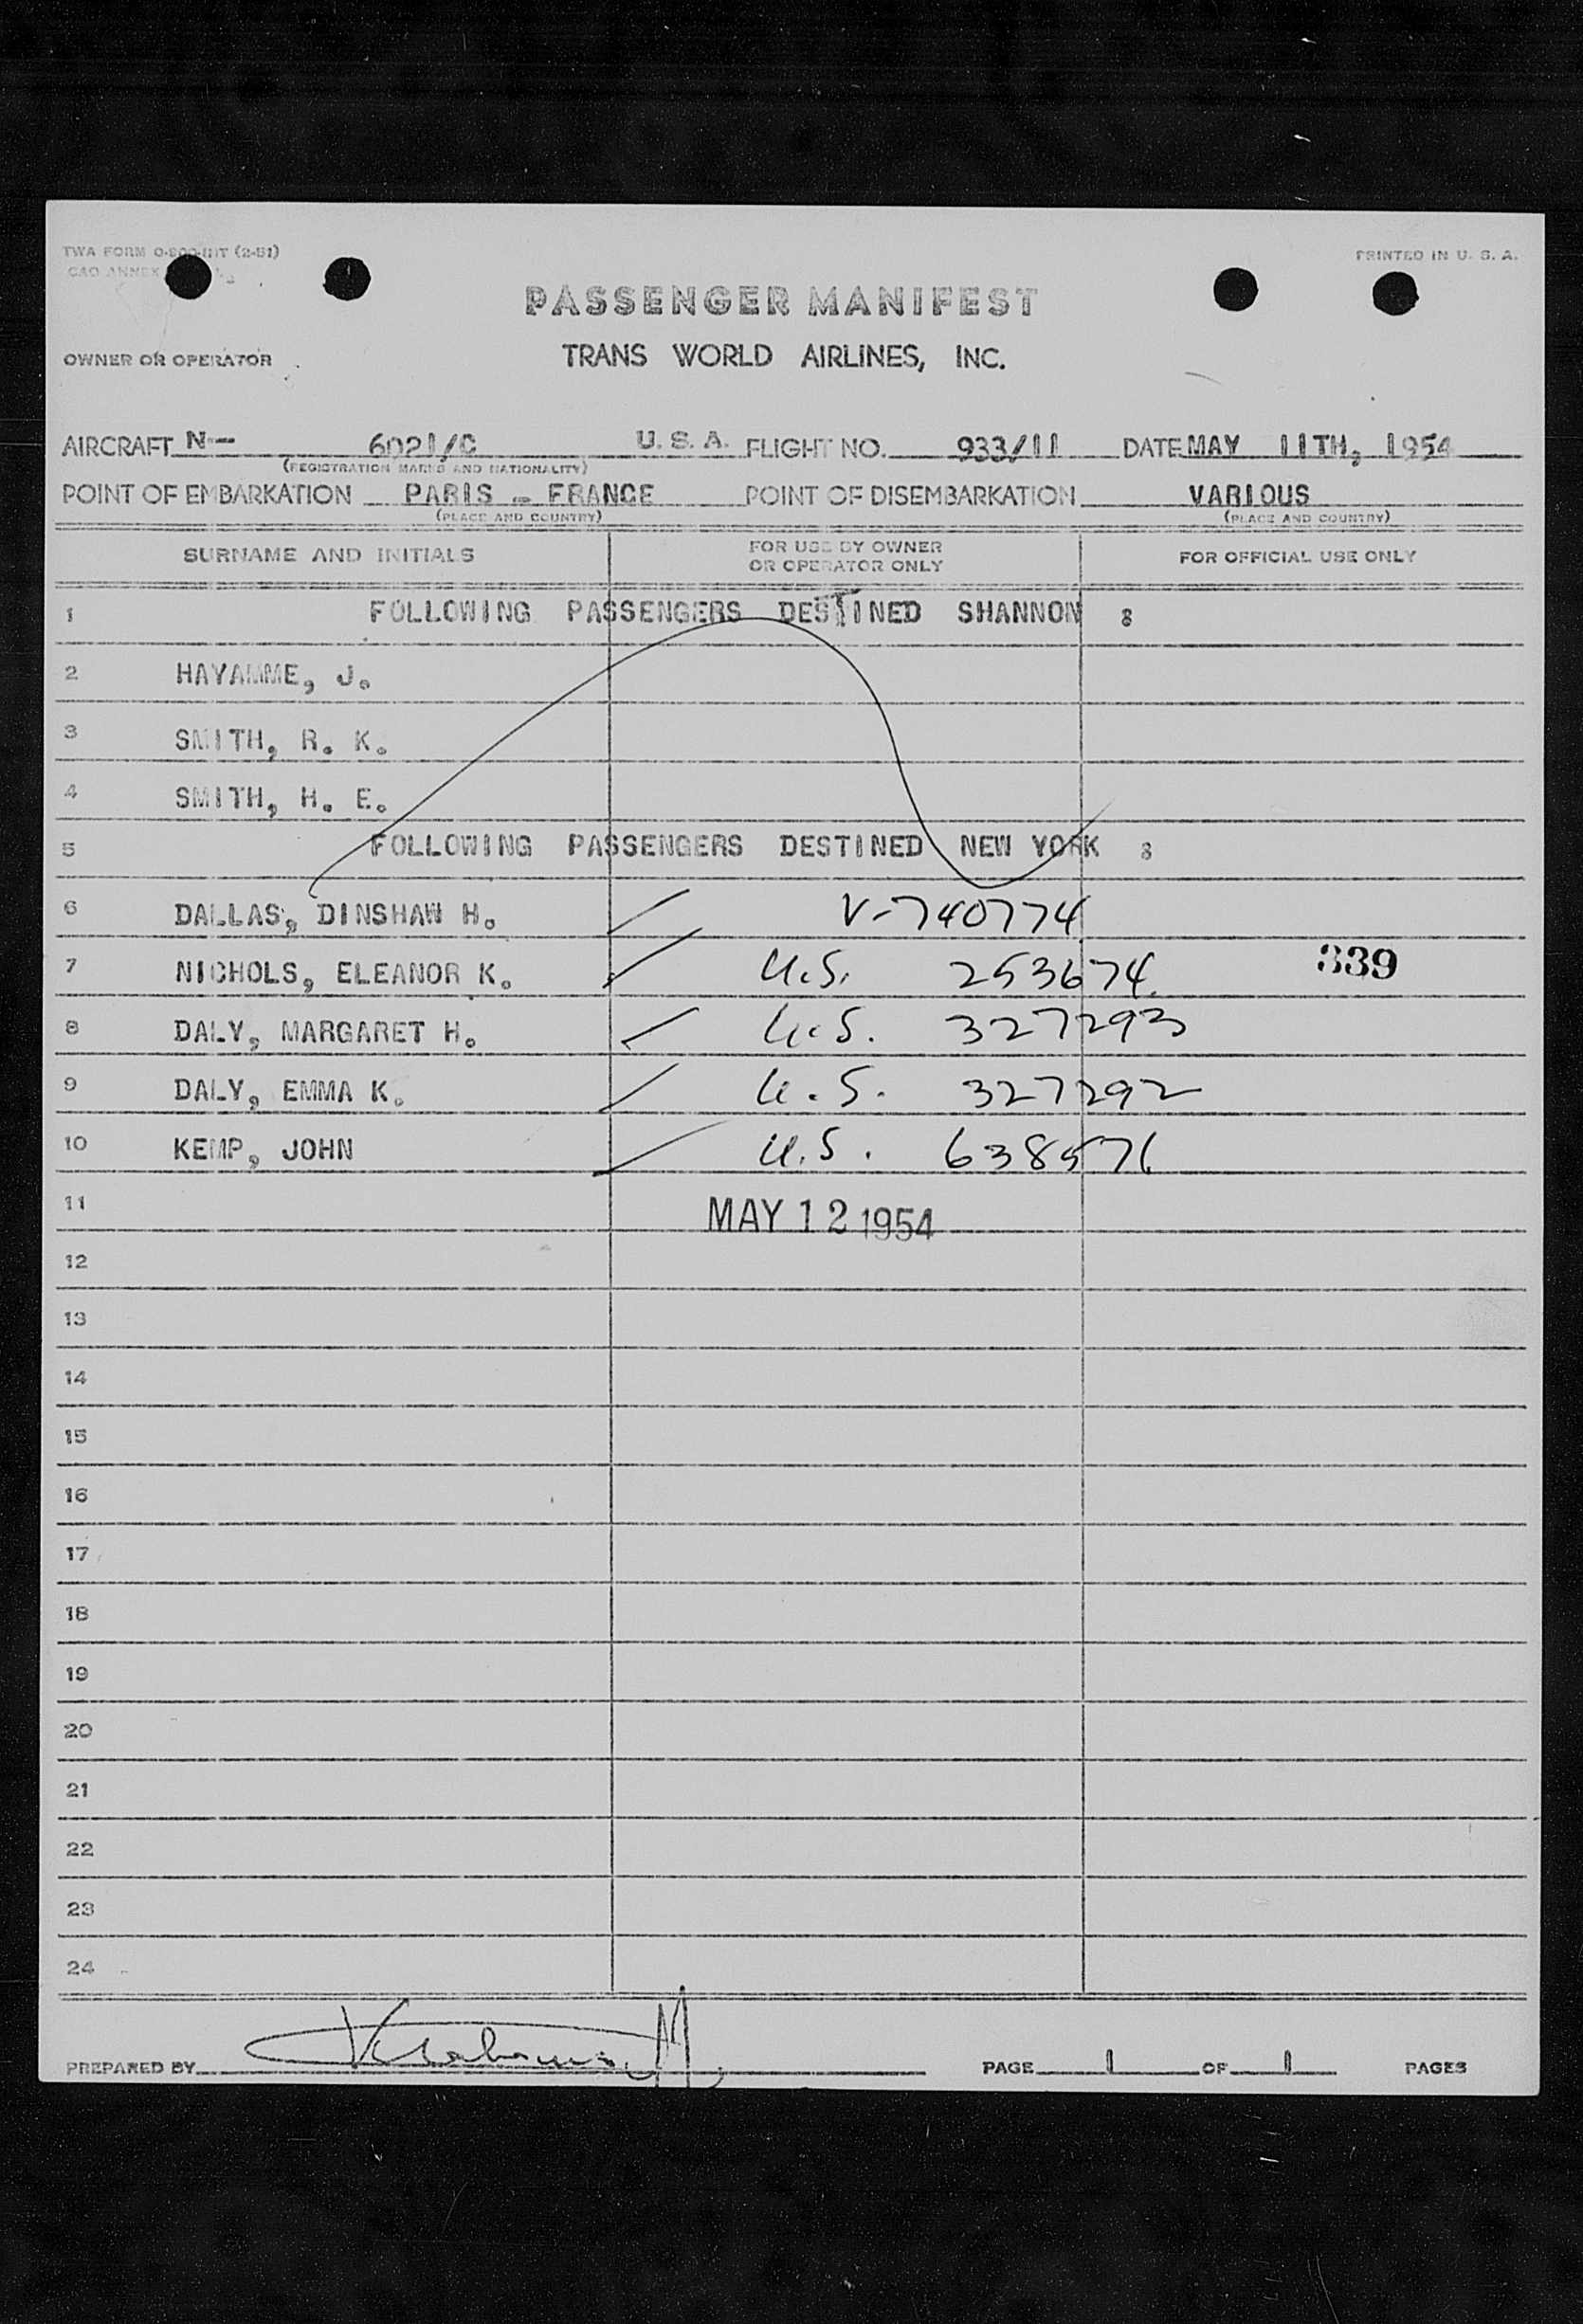 TWA FORM O-800-INT (2-51)
PRINTED IN U. S. A.
PASSENGER MANIFEST
OWNER OR OPERATOR
TRANS WORLD AIRLINES, INC.
AIRCRAFT N- 6021/C U. S. A. FLIGHT NO. 933/11 DATE MAY 11TH, 1954
(REGISTRATION MARKS AND NATIONALITY)
POINT OF EMBARKATION PARIS - FRANCE POINT OF DISEMBARKATION VARIOUS
(PLACE AND COUNTRY) (PLACE AND COUNTRY)
SURNAME AND INITIALS FOR USE BY OWNER OR OPERATOR ONLY FOR OFFICIAL USE ONLY
1 FOLLOWING PASSENGERS DESTINED SHANNON :
2 HAYAMME, J.
3 SMITH, R. K.
4 SMITH, H. E.
5 FOLLOWING PASSENGERS DESTINED NEW YORK :
6 DALLAS, DINSHAW H. V-740774
7 NICHOLS, ELEANOR K. U.S. 253674 339
8 DALY, MARGARET H. U.S. 327293
9 DALY, EMMA K. U.S. 327292
10 KEMP, JOHN U.S. 638571
11 MAY 12 1954
12
13
14
15
16
17
18
19
20
21
22
23
24
PREPARED BY PAGE 1 OF 1 PAGES